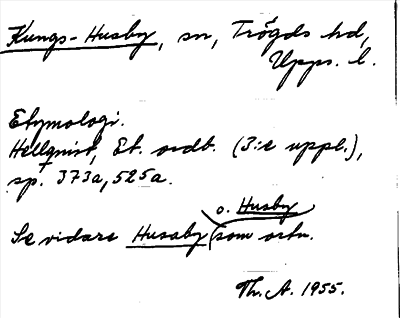 Kungs-Husby, sn, Trögds hd,
Upps. l.
Etymologi.
Hellquist, Et. ordb. (3:e uppl.),
sp. 373a, 525a.
o. Husby
Se vidare Husaby (som ortn.
Th. A. 1955.